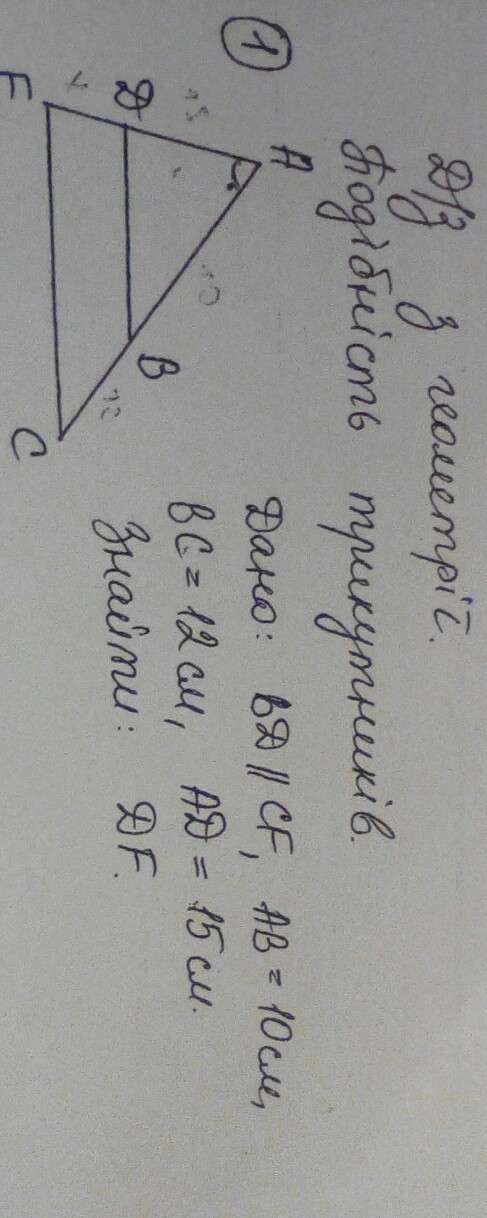 Д/З з геометрії.
Подібність трикутників.
1
A
15
10
D
B
12
F
C
Дано: BD || CF, AB = 10 см,
BC = 12 см, AD = 15 см.
Знайти: DF.